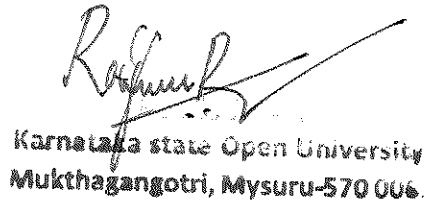 Karnataka state Open University
Mukthagangotri, Mysuru-570 006.